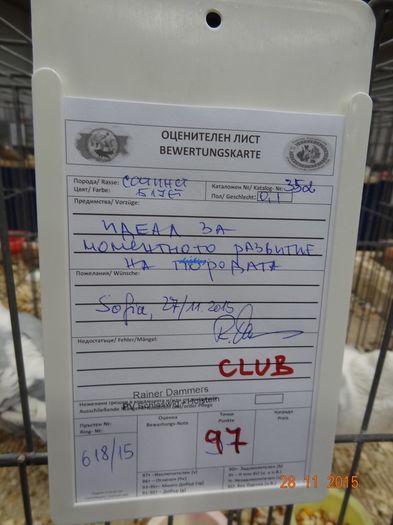 ОЦЕНИТЕЛЕН ЛИСТ
BEWERTUNGSKARTE
Порода/ Rasse:
Цвят/ Farbe:
Каталожен №/ Katalog- Nr.
Пол/ Geschlecht: 0,1
Предимства/ Vorzüge:
ИДЕАЛ ЗА
МОМЕНТНОТО РАЗВИТИЕ
НА ПОРОДАТА
Пожелания/ Wünsche:
Sofia, 27/11.2015
Недостатъци/ Fehler/Mängel:
CLUB
Rainer Dammers
Пръстен №
Ring- Nr.
Оценка
Bewertungs-Note
Точки
Punkte
Награда
Preis
618/15
97
28 11 2015